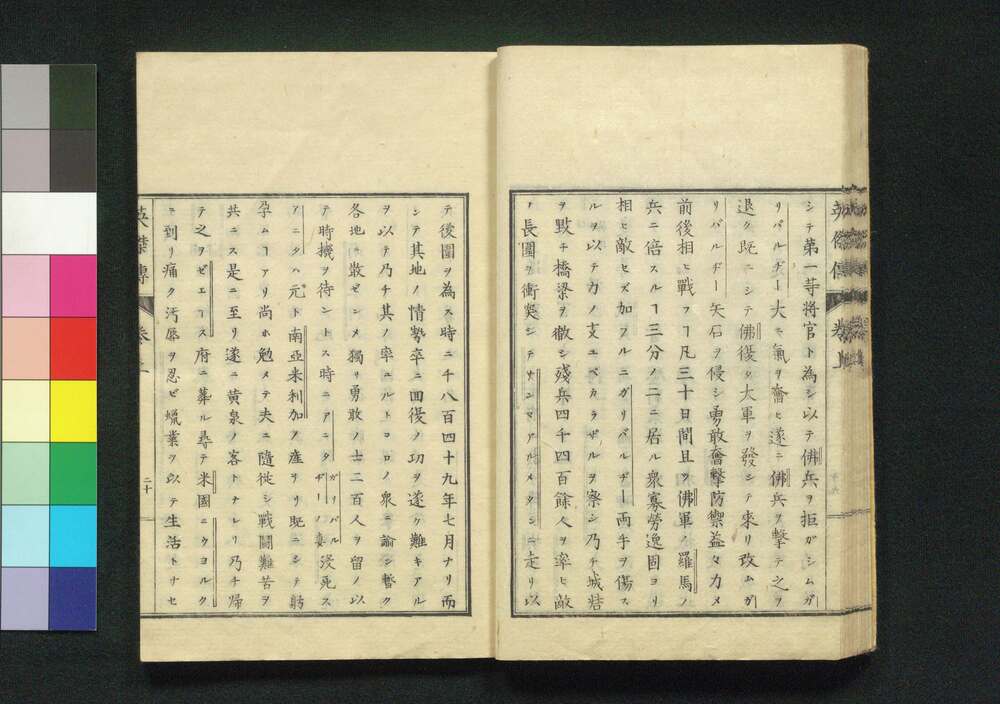 シテ第一等將官ト為シ以テ佛兵ヲ拒ガシムガ
リバルヂー大ニ氣ヲ奮ヒ遂ニ佛兵ヲ擊テ之ヲ
退ク既ニシテ佛復タ大軍ヲ發シテ來リ攻ムガ
リバルヂー矢石ヲ侵シ勇敢奮擊防禦益々力メ
前後相ヒ戰フヿ凡三十日間且ツ佛軍ノ羅馬ノ
兵ニ倍スルヿ三分ノ二ニ居ル衆寡勞逸固ヨリ
相ヒ敵セズ加フルニガリバルヂー両手ヲ傷ス
ルヲ以テ力ノ支ユベカラザルヲ察シ乃チ城砦
ヲ毀チ橋梁ヲ徹シ殘兵四千四百餘人ヲ率ヒ敵
ノ長圍ヲ衝突シテサンマアルメタンニ走リ以
英傑傳 卷
テ後圖ヲ為ス時ニ千八百四十九年七月ナリ而
シテ其地ノ情勢卒ニ回復ノ功ヲ遂ケ難キアル
ヲ以テ乃チ其ノ率ユルトコロノ衆ニ諭シ暫ク
各地ニ散ゼシメ獨リ勇敢ノ士二百人ヲ留メ以
テ時機ヲ待ントス時ニアニタガリバルヂーノ妻没死ス
アニタハ元ト南亞米利加ヲ産ヲリ既ニシテ躬
孕ムヿアリ尚ホ勉メテ夫ニ隨從シ戰鬪難苦ヲ
共ニス是ニ至リ遂ニ黄泉ノ客トナレリ乃チ歸
テ之ヲゼエーヌ府ニ葬ル尋テ米國ニウヨルク
ニ到リ痛ク汚辱ヲ忍ビ蝋業ヲ以テ生活トナセ
英傑傳 卷 二十